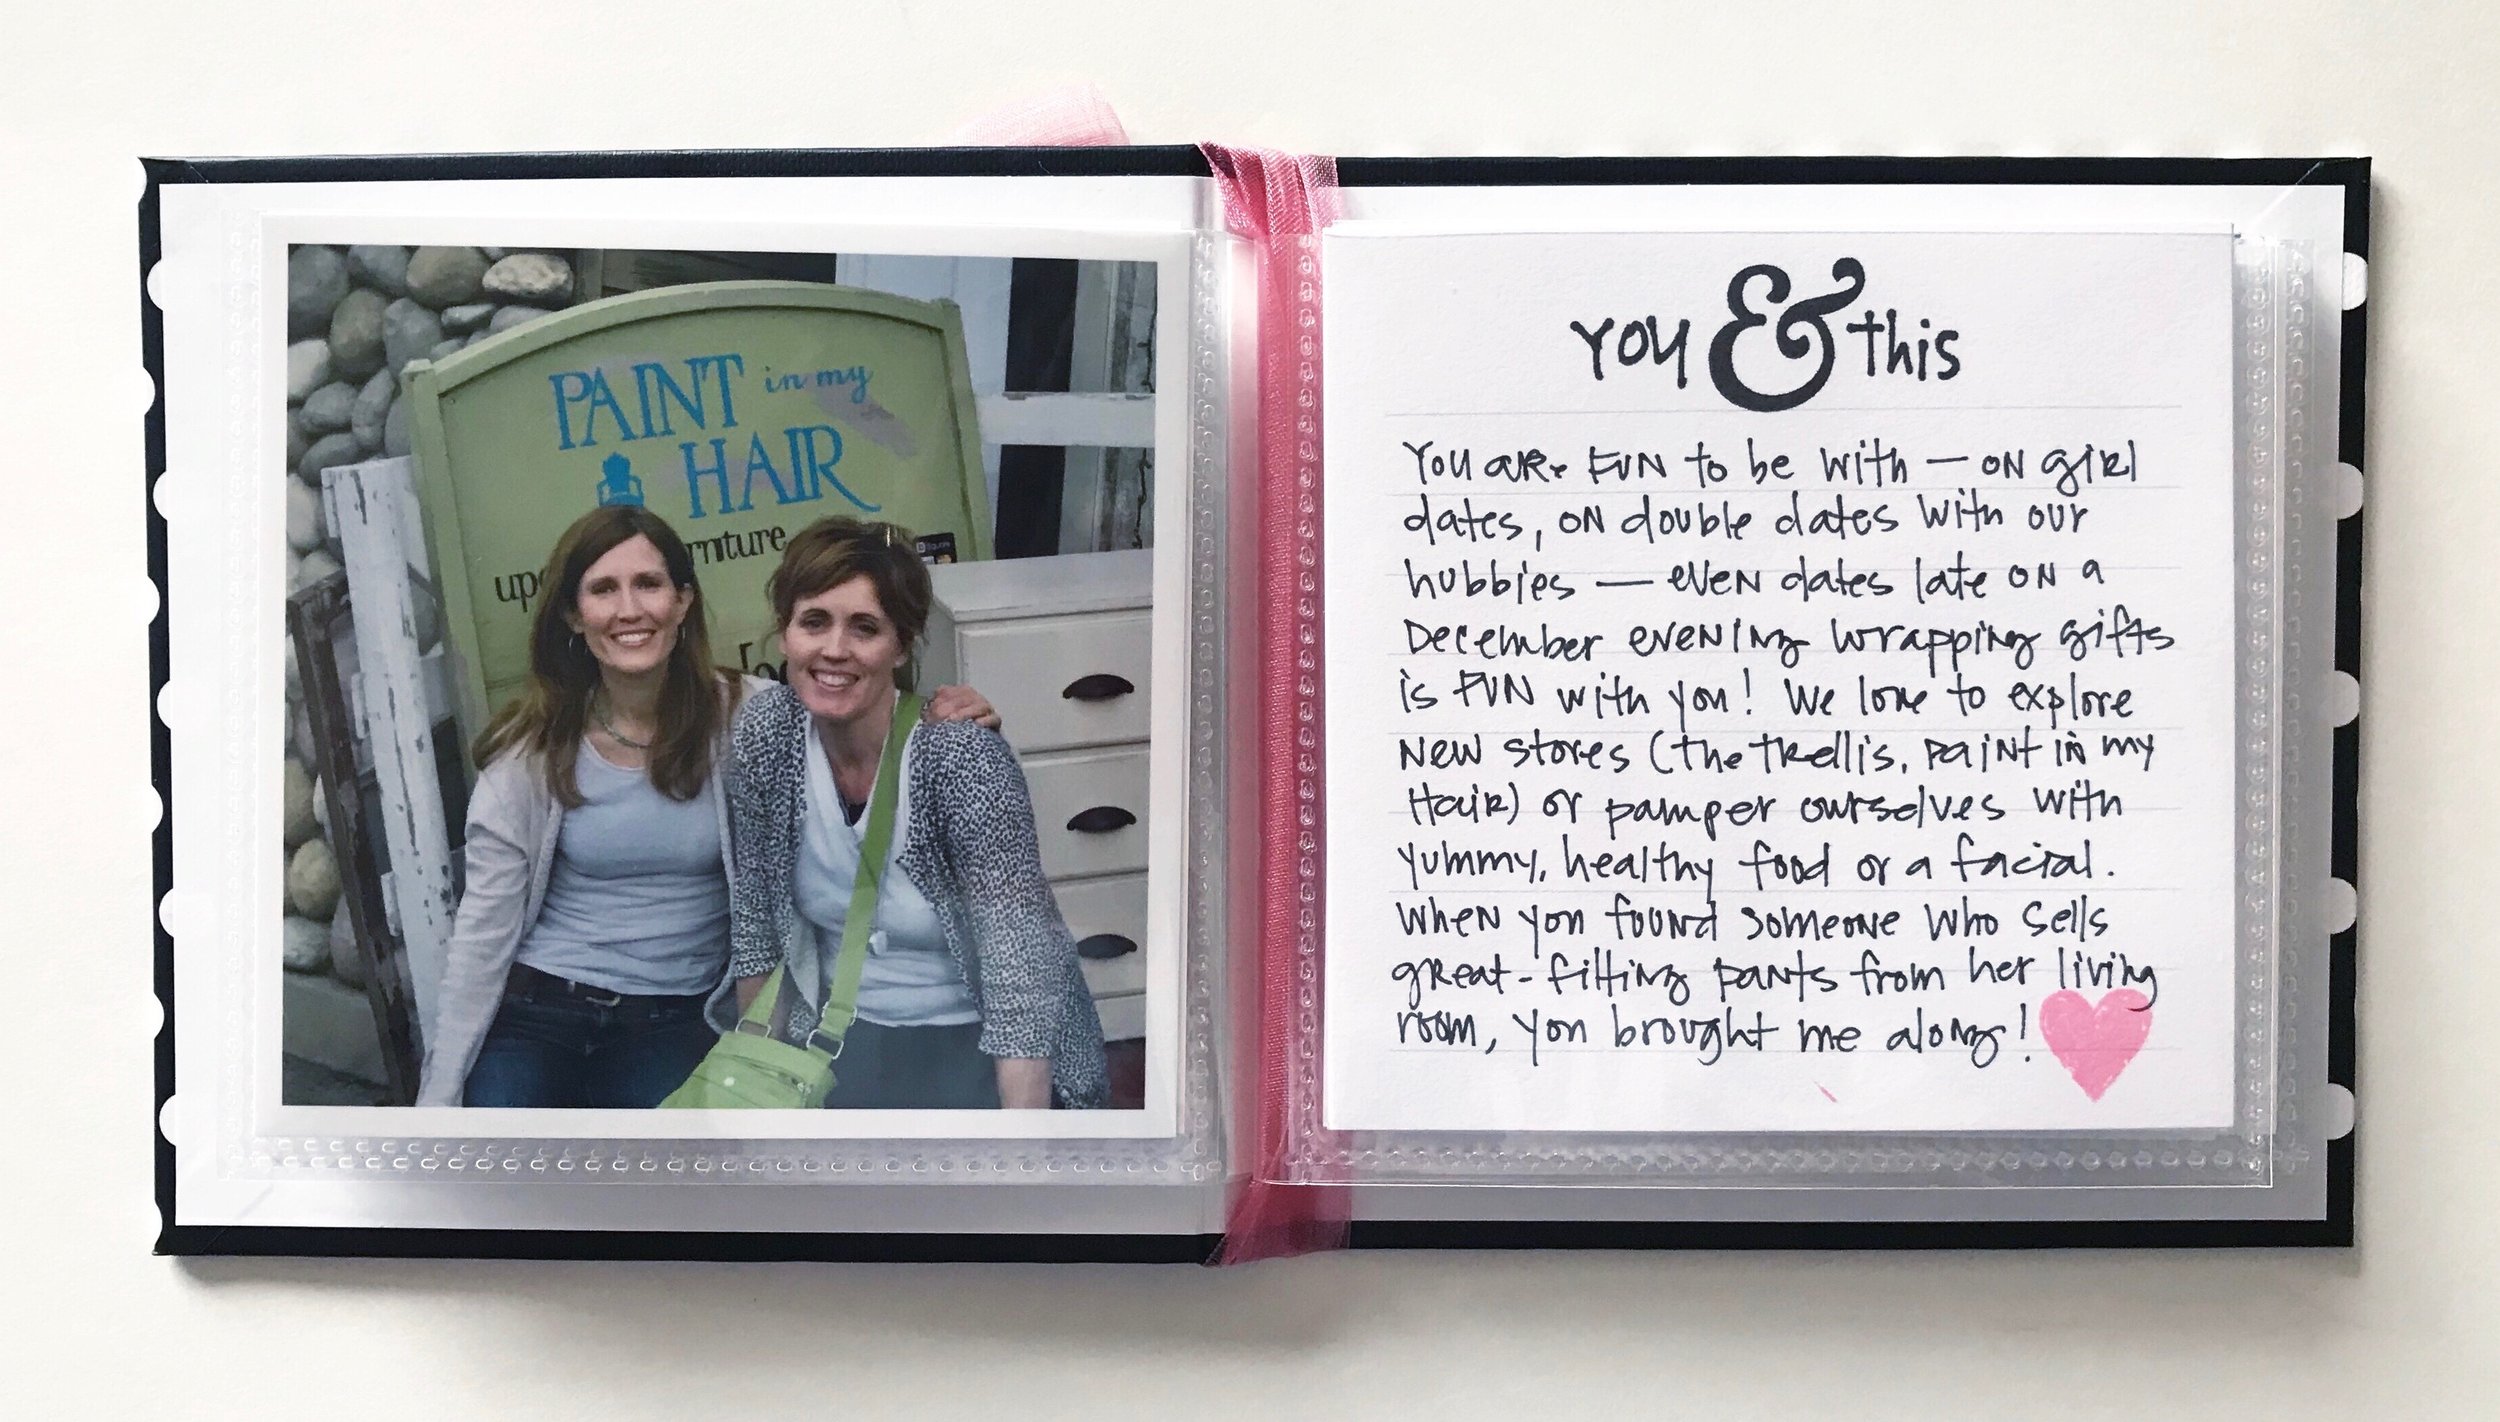 PAINT in my
HAIR
rniture
up
You & this
You are FUN to be with — on girl
dates, on double dates with our
hubbies — even dates late on a
December evening wrapping gifts
is FUN with you! We love to explore
new stores (the Trellis, Paint in my
Hair) or pamper ourselves with
yummy, healthy food or a facial.
When you found someone who sells
great-fitting pants from her living
room, you brought me along!